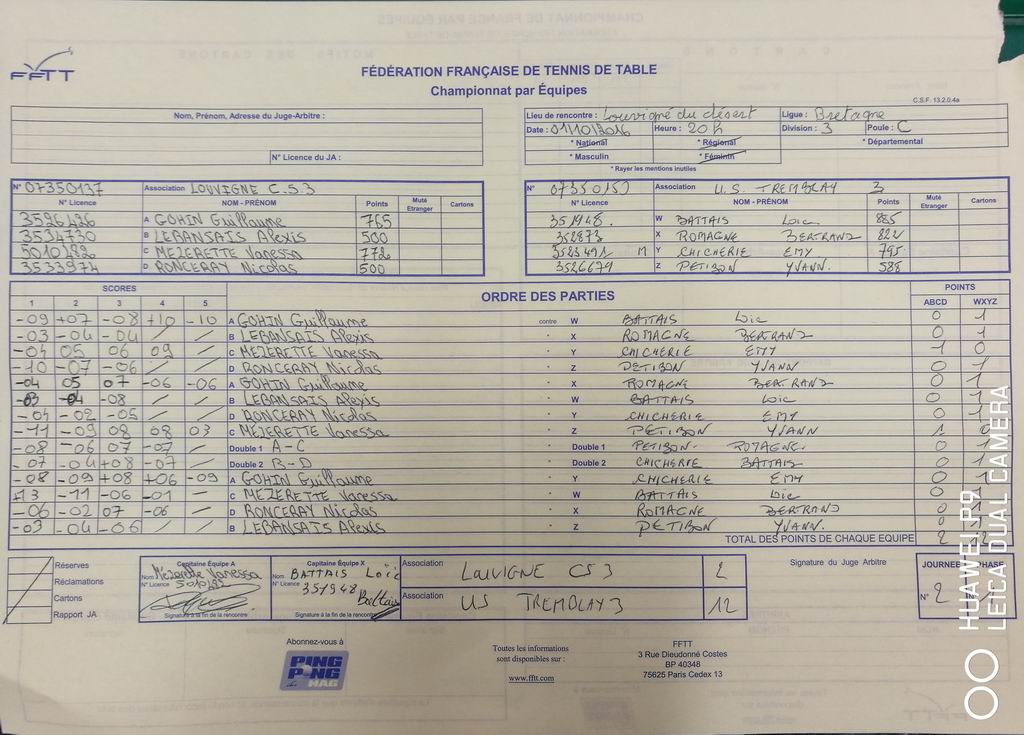 FFTT
FÉDÉRATION FRANÇAISE DE TENNIS DE TABLE
Championnat par Équipes
C.S.F. 13.2.0.4a
Nom, Prénom, Adresse du Juge-Arbitre :
N° Licence du JA :
Lieu de rencontre : Louvigné du désert Ligue : Bretagne
Date : 01/10/2016 Heure : 20h Division : 3 Poule : C
* National * Régional * Départemental
* Masculin * Féminin
* Rayer les mentions inutiles
N° 07350137 Association LOUVIGNE C.S.3
N° Licence NOM - PRÉNOM Points Muté Etranger Cartons
3526426 A GOHIN Guillaume 765
3534730 B LEBANSAIS Alexis 500
5010282 C MEZERETTE Vanessa 772
3533974 D RONCERAY Nicolas 500
N° Association U.S. TREMBLAY 3
N° Licence NOM - PRÉNOM Points Muté Etranger Cartons
351948 W BATTAIS Loic 885
352873 X ROMAGNE BERTRAND 822
3523491 M Y CHICHERIE EMY 795
3526679 Z PETIBON YVANN. 588
SCORES ORDRE DES PARTIES POINTS
1 2 3 4 5 ABCD WXYZ
-09 +07 -08 +10 -10 A GOHIN Guillaume contre W BATTAIS Loic 0 1
-03 -04 -04 / / B LEBANSAIS Alexis " X ROMAGNE BERTRAND 0 1
-04 05 06 09 / C MEZERETTE Vanessa " Y CHICHERIE EMY 1 0
-10 -07 -06 / / D RONCERAY Nicolas " Z PETIBON YVANN 0 1
-04 05 07 -06 -06 A GOHIN Guillaume " X ROMAGNE BERTRAND 0 1
-03 -04 -08 / / B LEBANSAIS Alexis " W BATTAIS Loic 0 1
-04 -02 -05 / / D RONCERAY Nicolas " Y CHICHERIE EMY 0 1
-11 -09 08 08 03 C MEZERETTE Vanessa " Z PETIBON YVANN 1 0
-08 -06 07 -07 / Double 1 A-C Double 1 PETIBON - ROMAGNE. 0 1
-07 -04 +08 -07 / Double 2 B-D Double 2 CHICHERIE BATTAIS 0 1
-08 -09 +08 +06 -09 A GOHIN Guillaume " Y CHICHERIE EMY 0 1
+13 -11 -06 -01 / C MEZERETTE Vanessa " W BATTAIS Loic 0 1
-06 -02 07 -06 / D RONCERAY Nicolas " X ROMAGNE BERTRAND 0 1
-03 -04 -06 / / B LEBANSAIS Alexis " Z PETIBON YVANN. 0 1
TOTAL DES POINTS DE CHAQUE EQUIPE 2 12
Réserves
Réclamations
Cartons
Rapport JA
Capitaine Équipe A
Nom Mézerette Vanessa
N° Licence 5010282
Signature à la fin de la rencontre
Capitaine Équipe X
Nom BATTAIS Loïc
N° Licence 351948
Battais
Signature à la fin de la rencontre
Association LOUVIGNE CS 3 2
Association US TREMBLAY 3 12
Signature du Juge Arbitre
JOURNÉE PHASE
N° 2 N° 1
Abonnez-vous à
PING PONG MAG
Toutes les informations
sont disponibles sur :
www.fftt.com
FFTT
3 Rue Dieudonné Costes
BP 40348
75625 Paris Cedex 13
HUAWEI P9
LEICA DUAL CAMERA